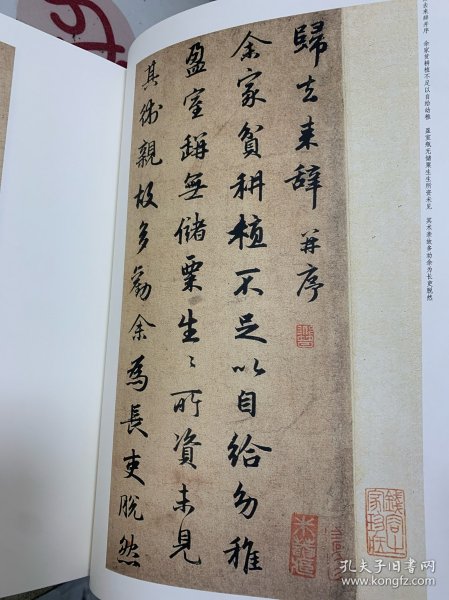 歸去来辞并序
余家貧耕植不足以自給幼稚
盈室缾無儲粟生〻所資未見
其術親故多勸余為長吏脫然
去来辞并序 余家贫耕植不足以自给幼稚 盈室瓶无储粟生生所资未见 其术亲故多劝余为长吏脱然
孔夫子旧书网